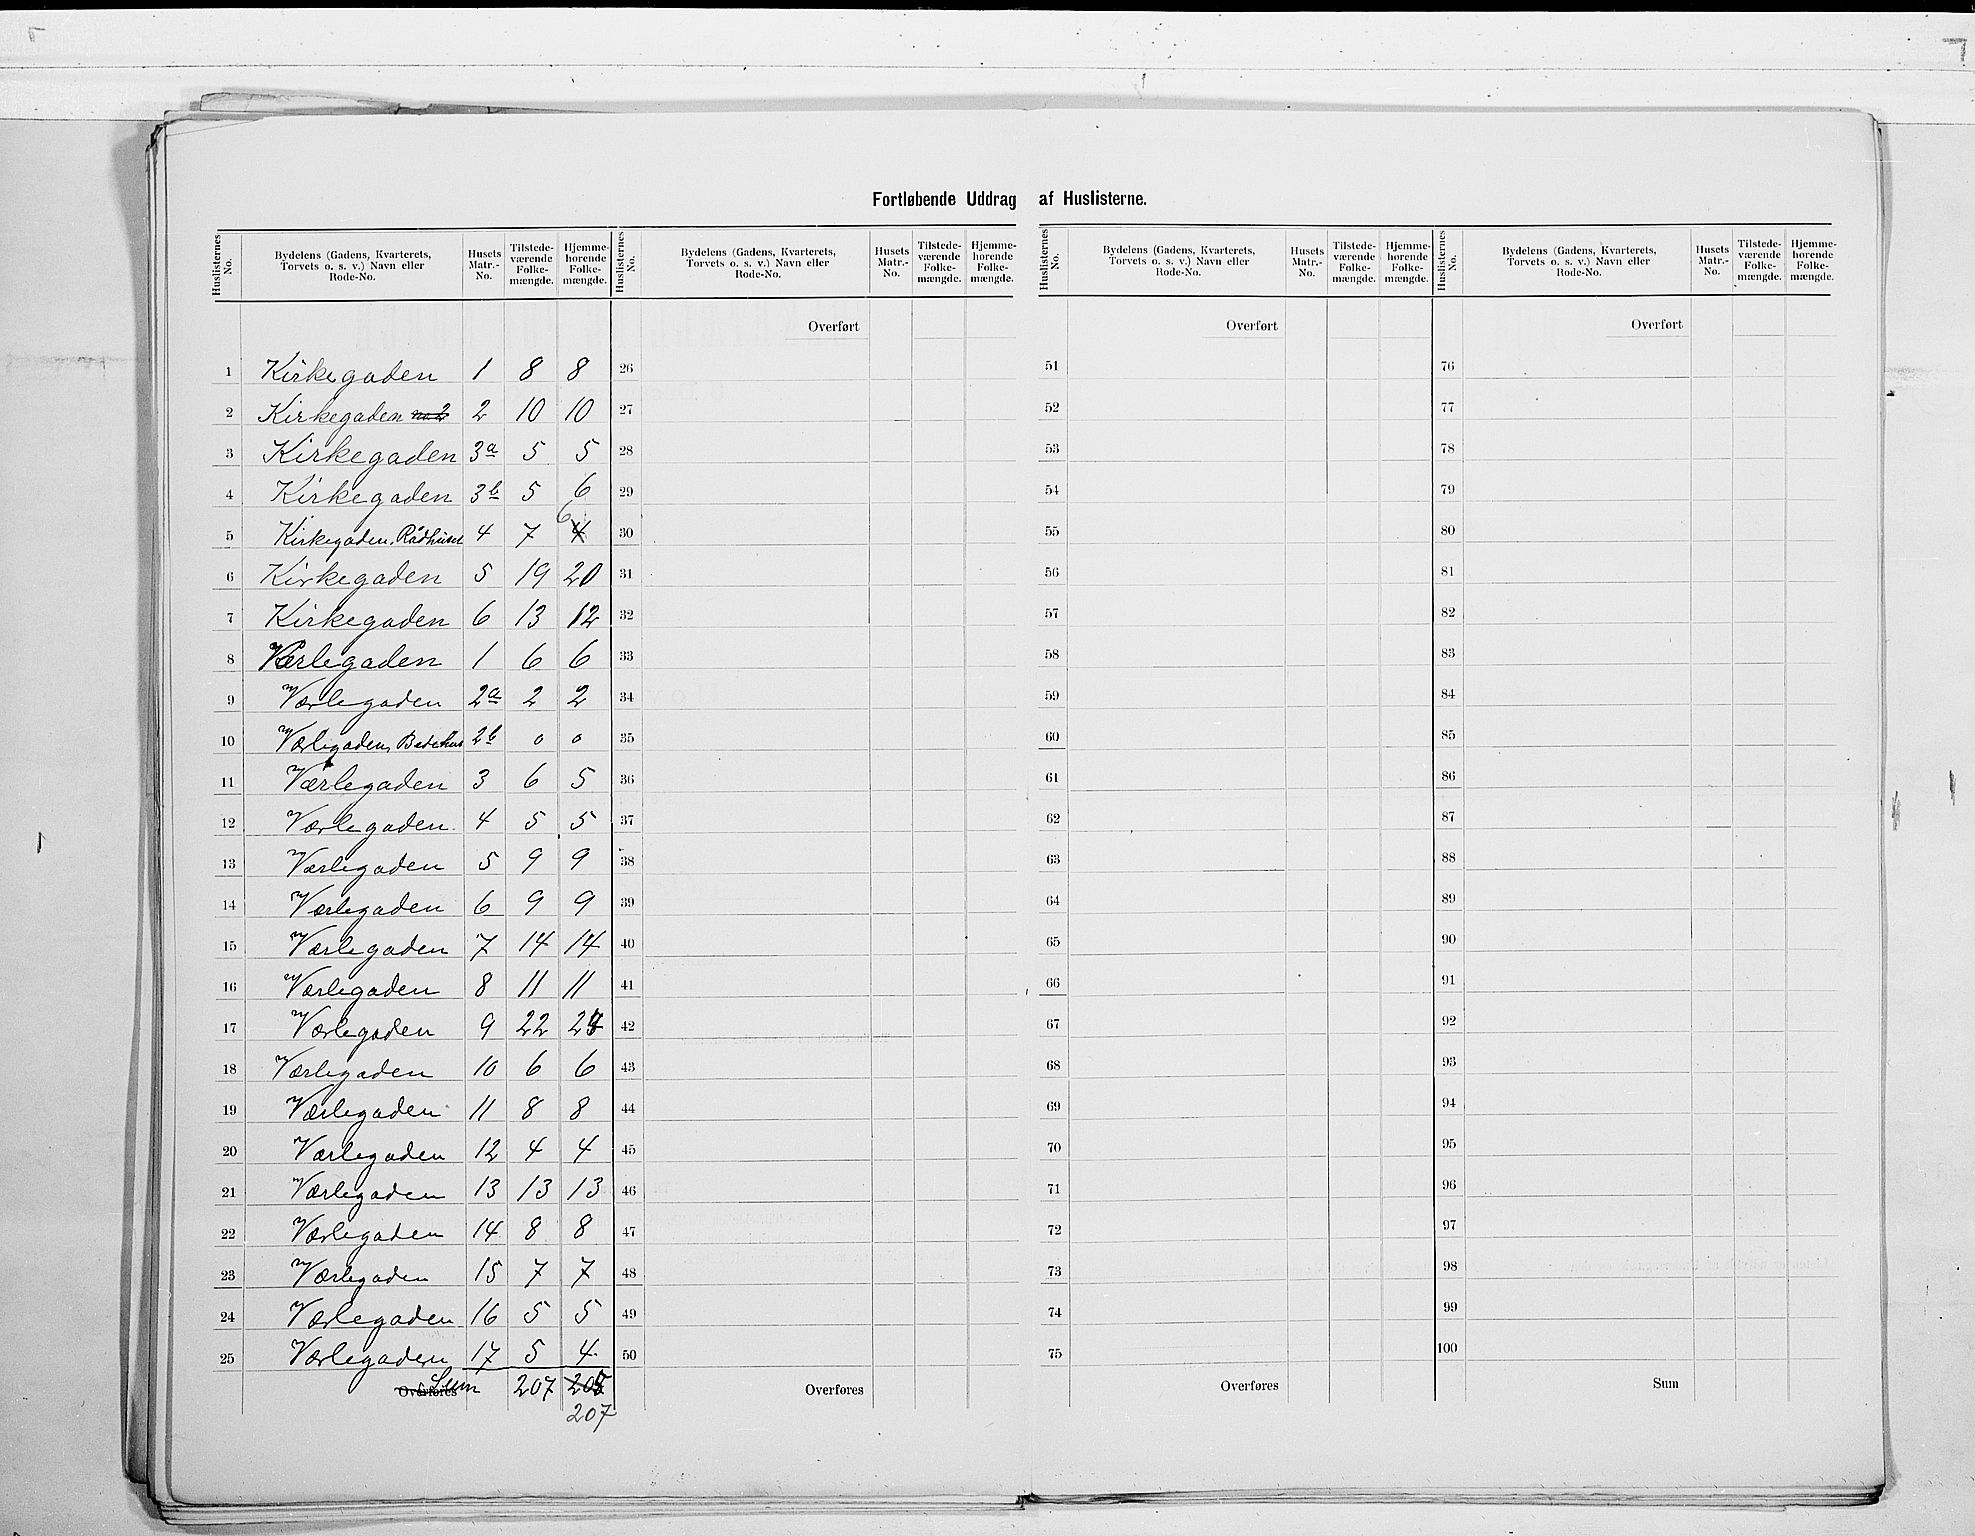 Fortløbende Uddrag af Huslisterne.
Huslisternes No. | Bydelens (Gadens, Kvarterets, Torvets o. s. v.) Navn eller Rode-No. | Husets Matr.-No. | Tilstedeværende Folkemængde. | Hjemmehørende Folkemængde. | Huslisternes No. | Bydelens (Gadens, Kvarterets, Torvets o. s. v.) Navn eller Rode-No. | Husets Matr.-No. | Tilstedeværende Folkemængde. | Hjemmehørende Folkemængde. | Huslisternes No. | Bydelens (Gadens, Kvarterets, Torvets o. s. v.) Navn eller Rode-No. | Husets Matr.-No. | Tilstedeværende Folkemængde. | Hjemmehørende Folkemængde. | Huslisternes No. | Bydelens (Gadens, Kvarterets, Torvets o. s. v.) Navn eller Rode-No. | Husets Matr.-No. | Tilstedeværende Folkemængde. | Hjemmehørende Folkemængde.
Overført Overført Overført
1 Kirkegaden 1 8 8 26 51 76
2 Kirkegaden no 2 2 10 10 27 52 77
3 Kirkegaden 3a 5 5 28 53 78
4 Kirkegaden 3b 5 6 29 54 79
5 Kirkegaden, Rådhuset 4 7 4 6 30 55 80
6 Kirkegaden 5 19 20 31 56 81
7 Kirkegaden 6 13 12 32 57 82
8 Værlegaden 1 6 6 33 58 83
9 Værlegaden 2a 2 2 34 59 84
10 Værlegaden, Badehus 2b 0 0 35 60 85
11 Værlegaden 3 6 5 36 61 86
12 Værlegaden 4 5 5 37 62 87
13 Værlegaden 5 9 9 38 63 88
14 Værlegaden 6 9 9 39 64 89
15 Værlegaden 7 14 14 40 65 90
16 Værlegaden 8 11 11 41 66 91
17 Værlegaden 9 22 24 42 67 92
18 Værlegaden 10 6 6 43 68 93
19 Værlegaden 11 8 8 44 69 94
20 Værlegaden 12 4 4 45 70 95
21 Værlegaden 13 13 13 46 71 96
22 Værlegaden 14 8 8 47 72 97
23 Værlegaden 15 7 7 48 73 98
24 Værlegaden 16 5 5 49 74 99
25 Værlegaden 17 5 4 50 75 100
Overføres Sum 207 205 Overføres Overføres Sum
207